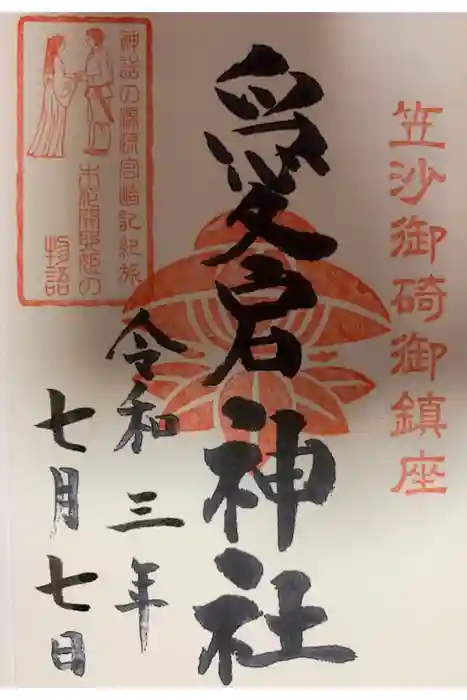 笠沙御碕御鎮座
愛宕神社
令和三年
七月七日
神話の源流宮崎記紀旅
木花開耶姫の
物語